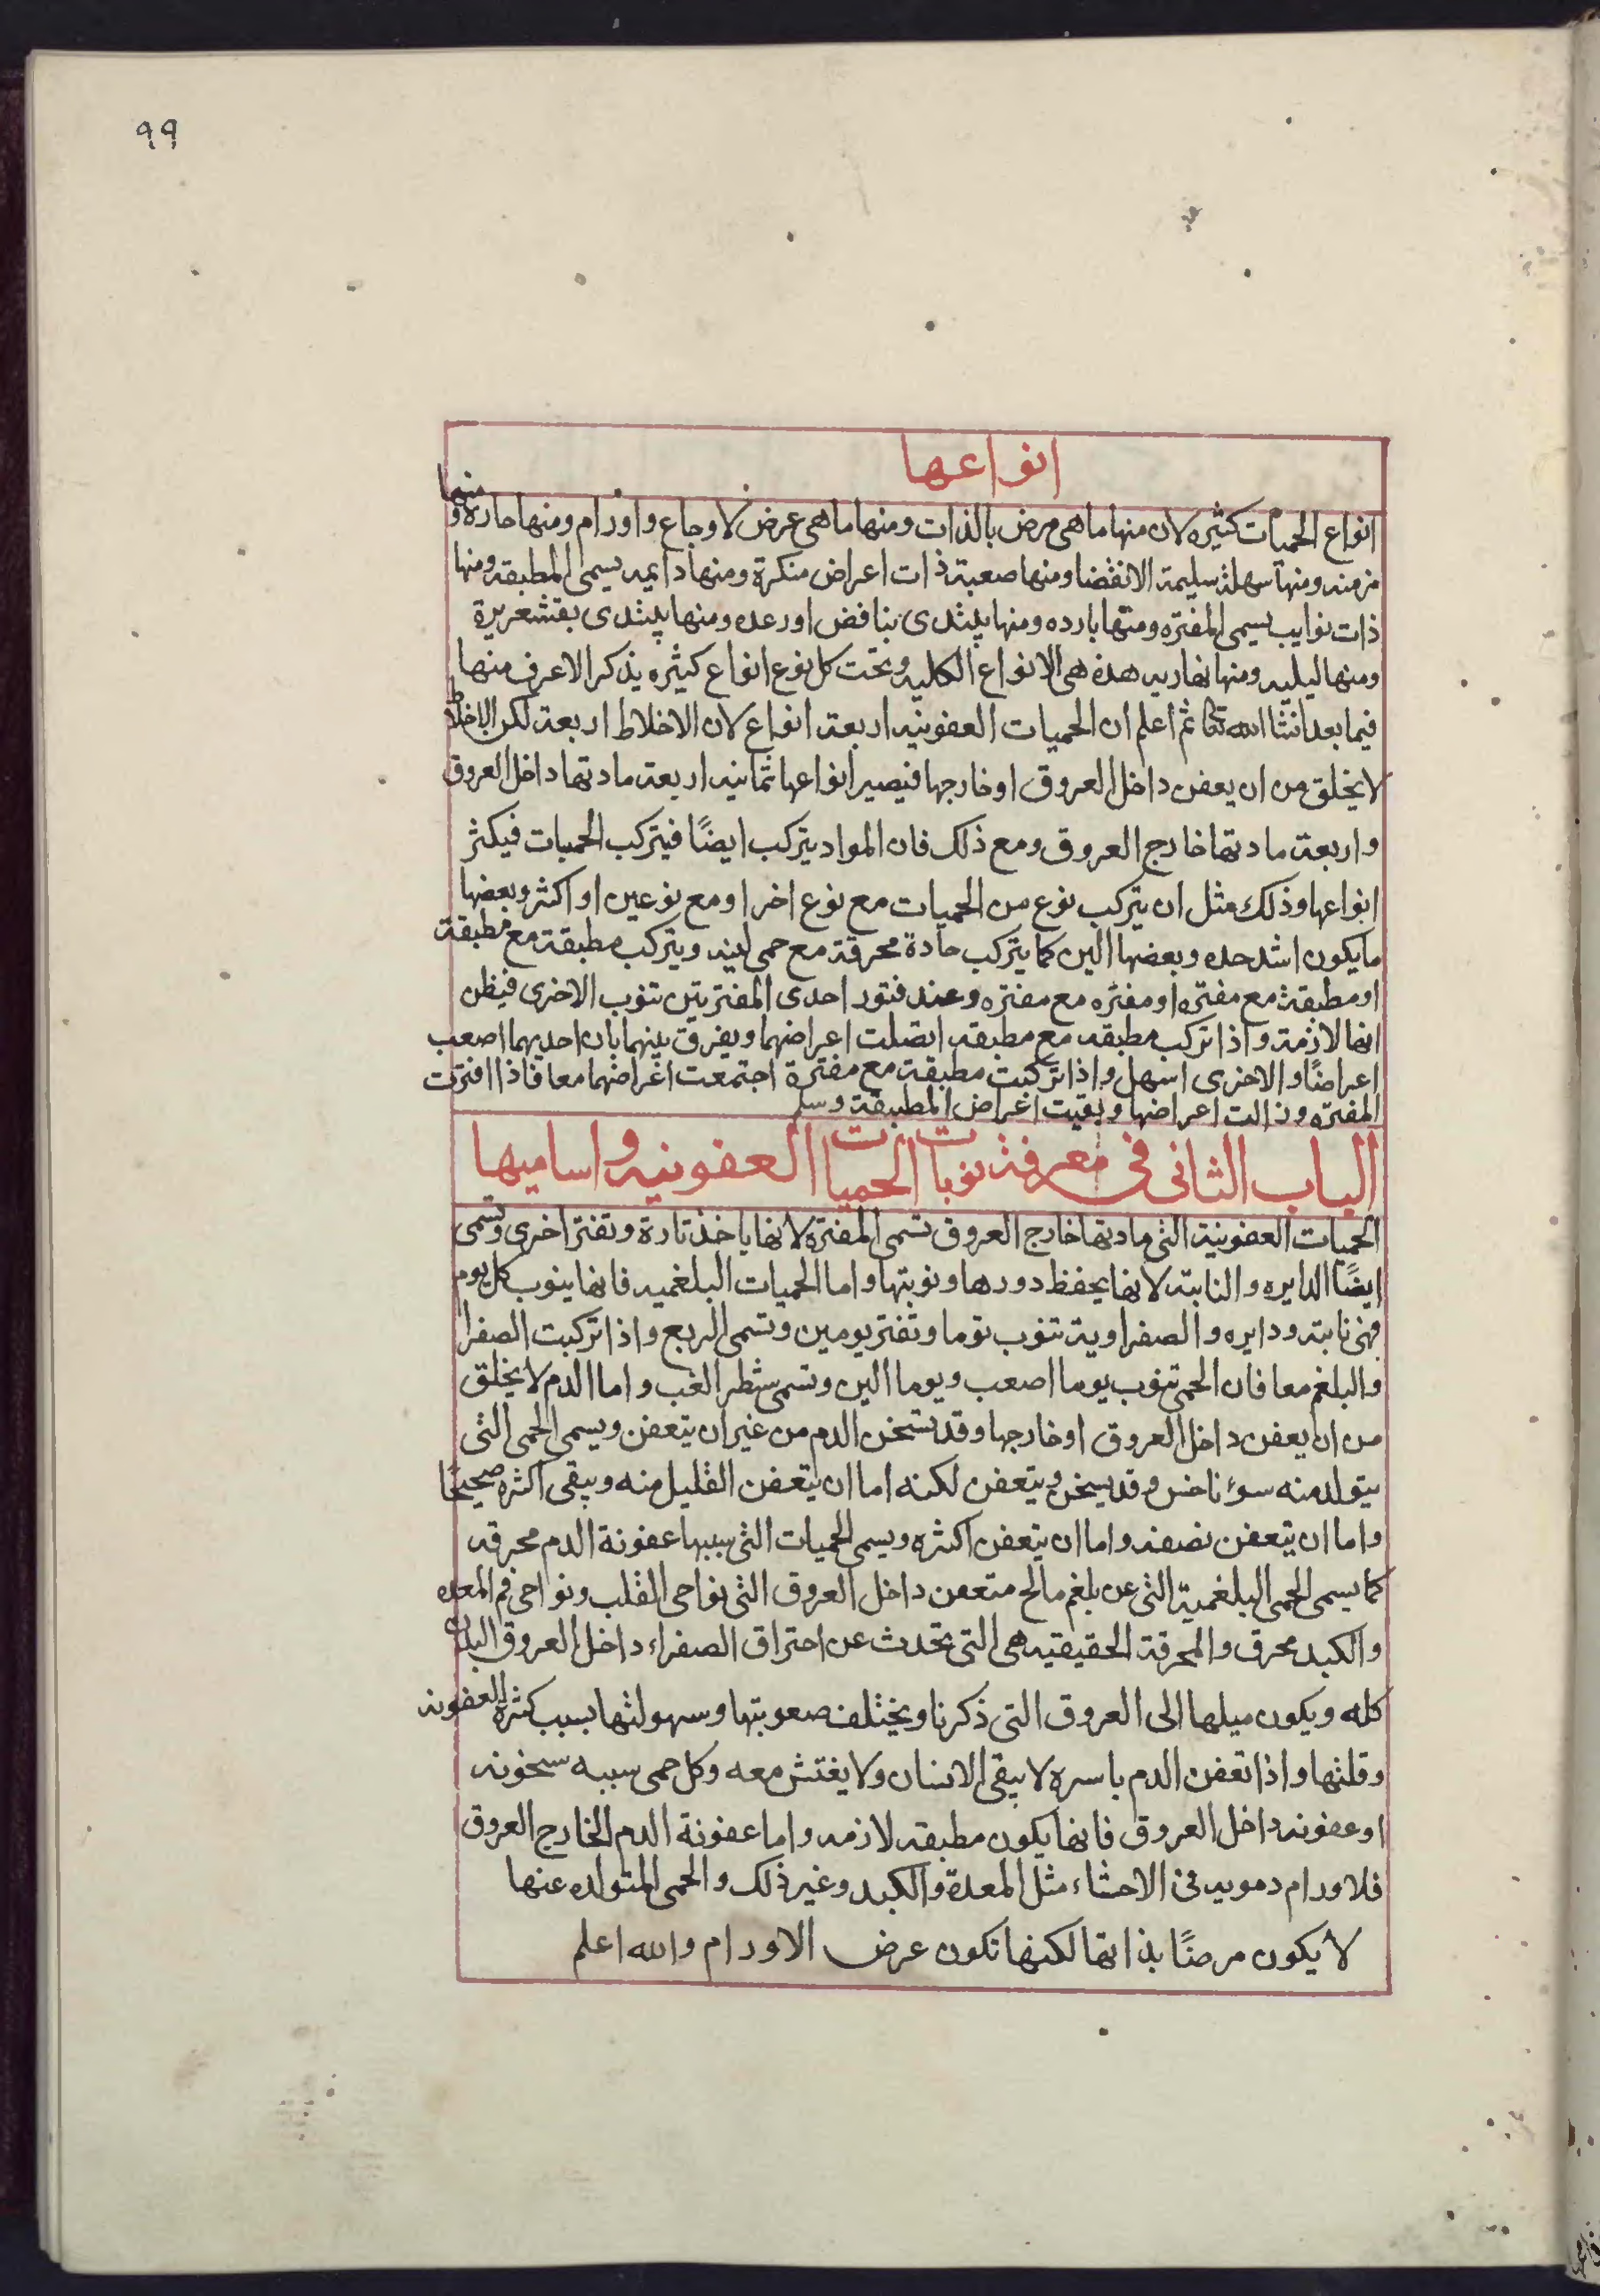 ٩٩
انواعها
انواع الحميات كثيره لان منها ما هى مرض بالذات ومنها ما هى عرض لاوجاع واورام ومنها حاره و منها
مزمنه ومنها سهلة سليمة الانقضا ومنها صعبة ذات اعراض منكرة ومنها دايمه يسمى المطبقه ومنها
ذات نوايب يسمى المفتره ومنها بارده ومنها يبتدى بنافض او رعده ومنها يبتدى بقشعريرة
ومنها ليليه ومنها نهاريه هذه هى الانواع الكليه وتحت كل نوع انواع كثيره يذكر الاعرف منها
فيما بعد انشا الله تعا ثم اعلم ان الحميات العفونيه اربعة انواع لان الاخلاط اربعة لكن الاخلاط
لا يخلق من ان يعفن داخل العروق او خارجها فيصير انواعها ثمانيه اربعة مادتها داخل العروق
واربعة مادتها خارج العروق ومع ذلك فان المواد يتركب ايضًا فيتركب الحميات فيكثر
انواعها وذلك مثل ان يتركب نوع من الحميات مع نوع اخر او مع نوعين او اكثر وبعضها
ما يكون اشد حده وبعضها الين كما يتركب حادة محرقة مع حمى لينه ويتركب مطبقة مع مطبقة
او مطبقة مع مفتره او مفتره مع مفتره وعند فتور احدى المفترتين تنوب الاخرى فيظن
انها لازمة واذا تركب مطبقه مع مطبقه اتصلت اعراضهما ويفرق بينهما بان احديهما اصعب
اعراضًا والاخرى اسهل واذا تركبت مطبقة مع مفترة اجتمعت اعراضهما معا فاذا افترت
المفتره وزالت اعراضها وبقيت اعراض المطبقة وسلم
الباب الثانى فى معرفة نوبات الحميات العفونيه واساميها
الحميات العفونية التى مادتها خارج العروق تسمى المفتره لانها ياخذ تارة وتفتر اخرى وتسمى
ايضًا الدايره والنابته لانها يحفظ دورها ونوبتها واما الحميات البلغميه فانها ينوب كل يوم
فهى نابته ودايره والصفراوية تنوب يوما وتفتر يومين وتسمى الربع واذا تركبت الصفرا
والبلغم معا فان الحمى تنوب يوما اصعب ويوما الين وتسمى شطر الغب واما الدم لا يخلق
من ان يعفن داخل العروق او خارجها وقد يسخن الدم من غير ان يتعفن ويسمى الحمى التى
يتولد منه سوناخس وقد يسخن ويتعفن لكنه اما ان يتعفن القليل منه ويبقى اكثره صحيحًا
واما ان يتعفن نصفه واما ان يتعفن اكثره ويسمى الحميات التى سببها عفونة الدم محرقه
كما يسمى الحمى البلغمية التى عن بلغم مالح متعفن داخل العروق التى نواحى القلب ونواحى فم المعده
والكبد محرق والمحرقة الحقيقيه هى التى تحدث عن احتراق الصفراء داخل العروق البدن
كله ويكون ميلها الى العروق التى ذكرنا ويختلف صعوبتها وسهولتها بسبب كثرة العفونه
وقلتها واذا تعفن الدم باسره لا يبقى الانسان ولا يغتش معه وكل حمى سببه سخونه
او عفونه داخل العروق فانها يكون مطبقه لازمه واما عفونة الدم الخارج العروق
فلاورام دمويه فى الاحشاء مثل المعدة والكبد وغير ذلك والحمى المتولده عنها
لا يكون مرضًا بذاتها لكنها تكون عرض الاورام والله اعلم